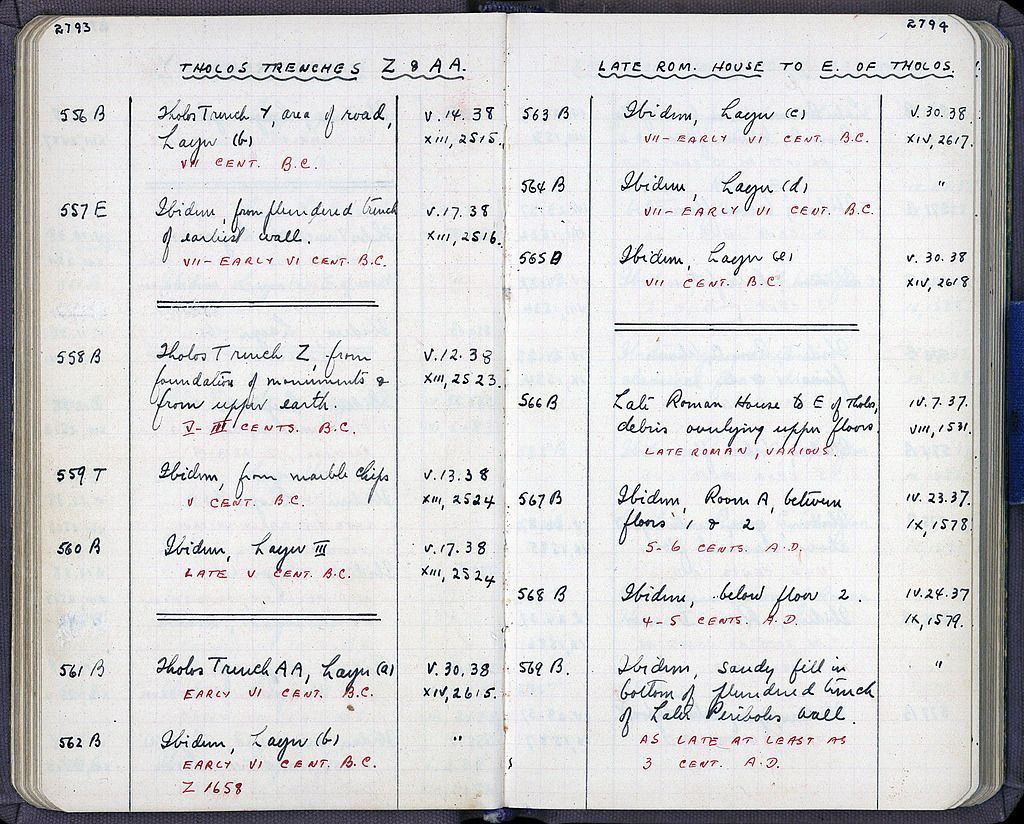 2793
THOLOS TRENCHES Z & AA.
556 B Tholos Trench Y, area of road, V.14.38
Layer (b) XIII, 2515.
VII CENT. B.C.
557 E Ibidem, from plundered trench V.17.38
of earliest wall. XIII, 2516.
VII - EARLY VI CENT. B.C.
558 B Tholos Trench Z, from V.12.38
foundation of monuments & XIII, 2523.
from upper earth.
V - III CENTS. B.C.
559 T Ibidem, from marble chips V.13.38
V CENT. B.C. XIII, 2524
560 B Ibidem, Layer III V.17.38
LATE V CENT. B.C. XIII, 2524
561 B Tholos Trench AA, Layer (a) V.30.38
EARLY VI CENT. B.C. XIV, 2615.
562 B Ibidem, Layer (b) "
EARLY VI CENT. B.C.
Z 1658
2794
LATE ROM. HOUSE TO E. OF THOLOS.
563 B Ibidem, Layer (c) V.30.38
VII - EARLY VI CENT. B.C. XIV, 2617.
564 B Ibidem, Layer (d) "
VII - EARLY VI CENT. B.C.
565 B Ibidem, Layer (e) V.30.38
VII CENT. B.C. XIV, 2618
566 B Late Roman House to E of Tholos, IV.7.37.
debris overlying upper floors. VIII, 1531.
LATE ROMAN, VARIOUS
567 B Ibidem, Room A, between IV.23.37.
floors 1 & 2 IX, 1578.
5-6 CENTS. A.D.
568 B Ibidem, below floor 2. IV.24.37
4-5 CENTS. A.D. IX, 1579.
569 B. Ibidem, sandy fill in "
bottom of plundered trench
of Later Peribolos wall.
AS LATE AT LEAST AS
3 CENT. A.D.